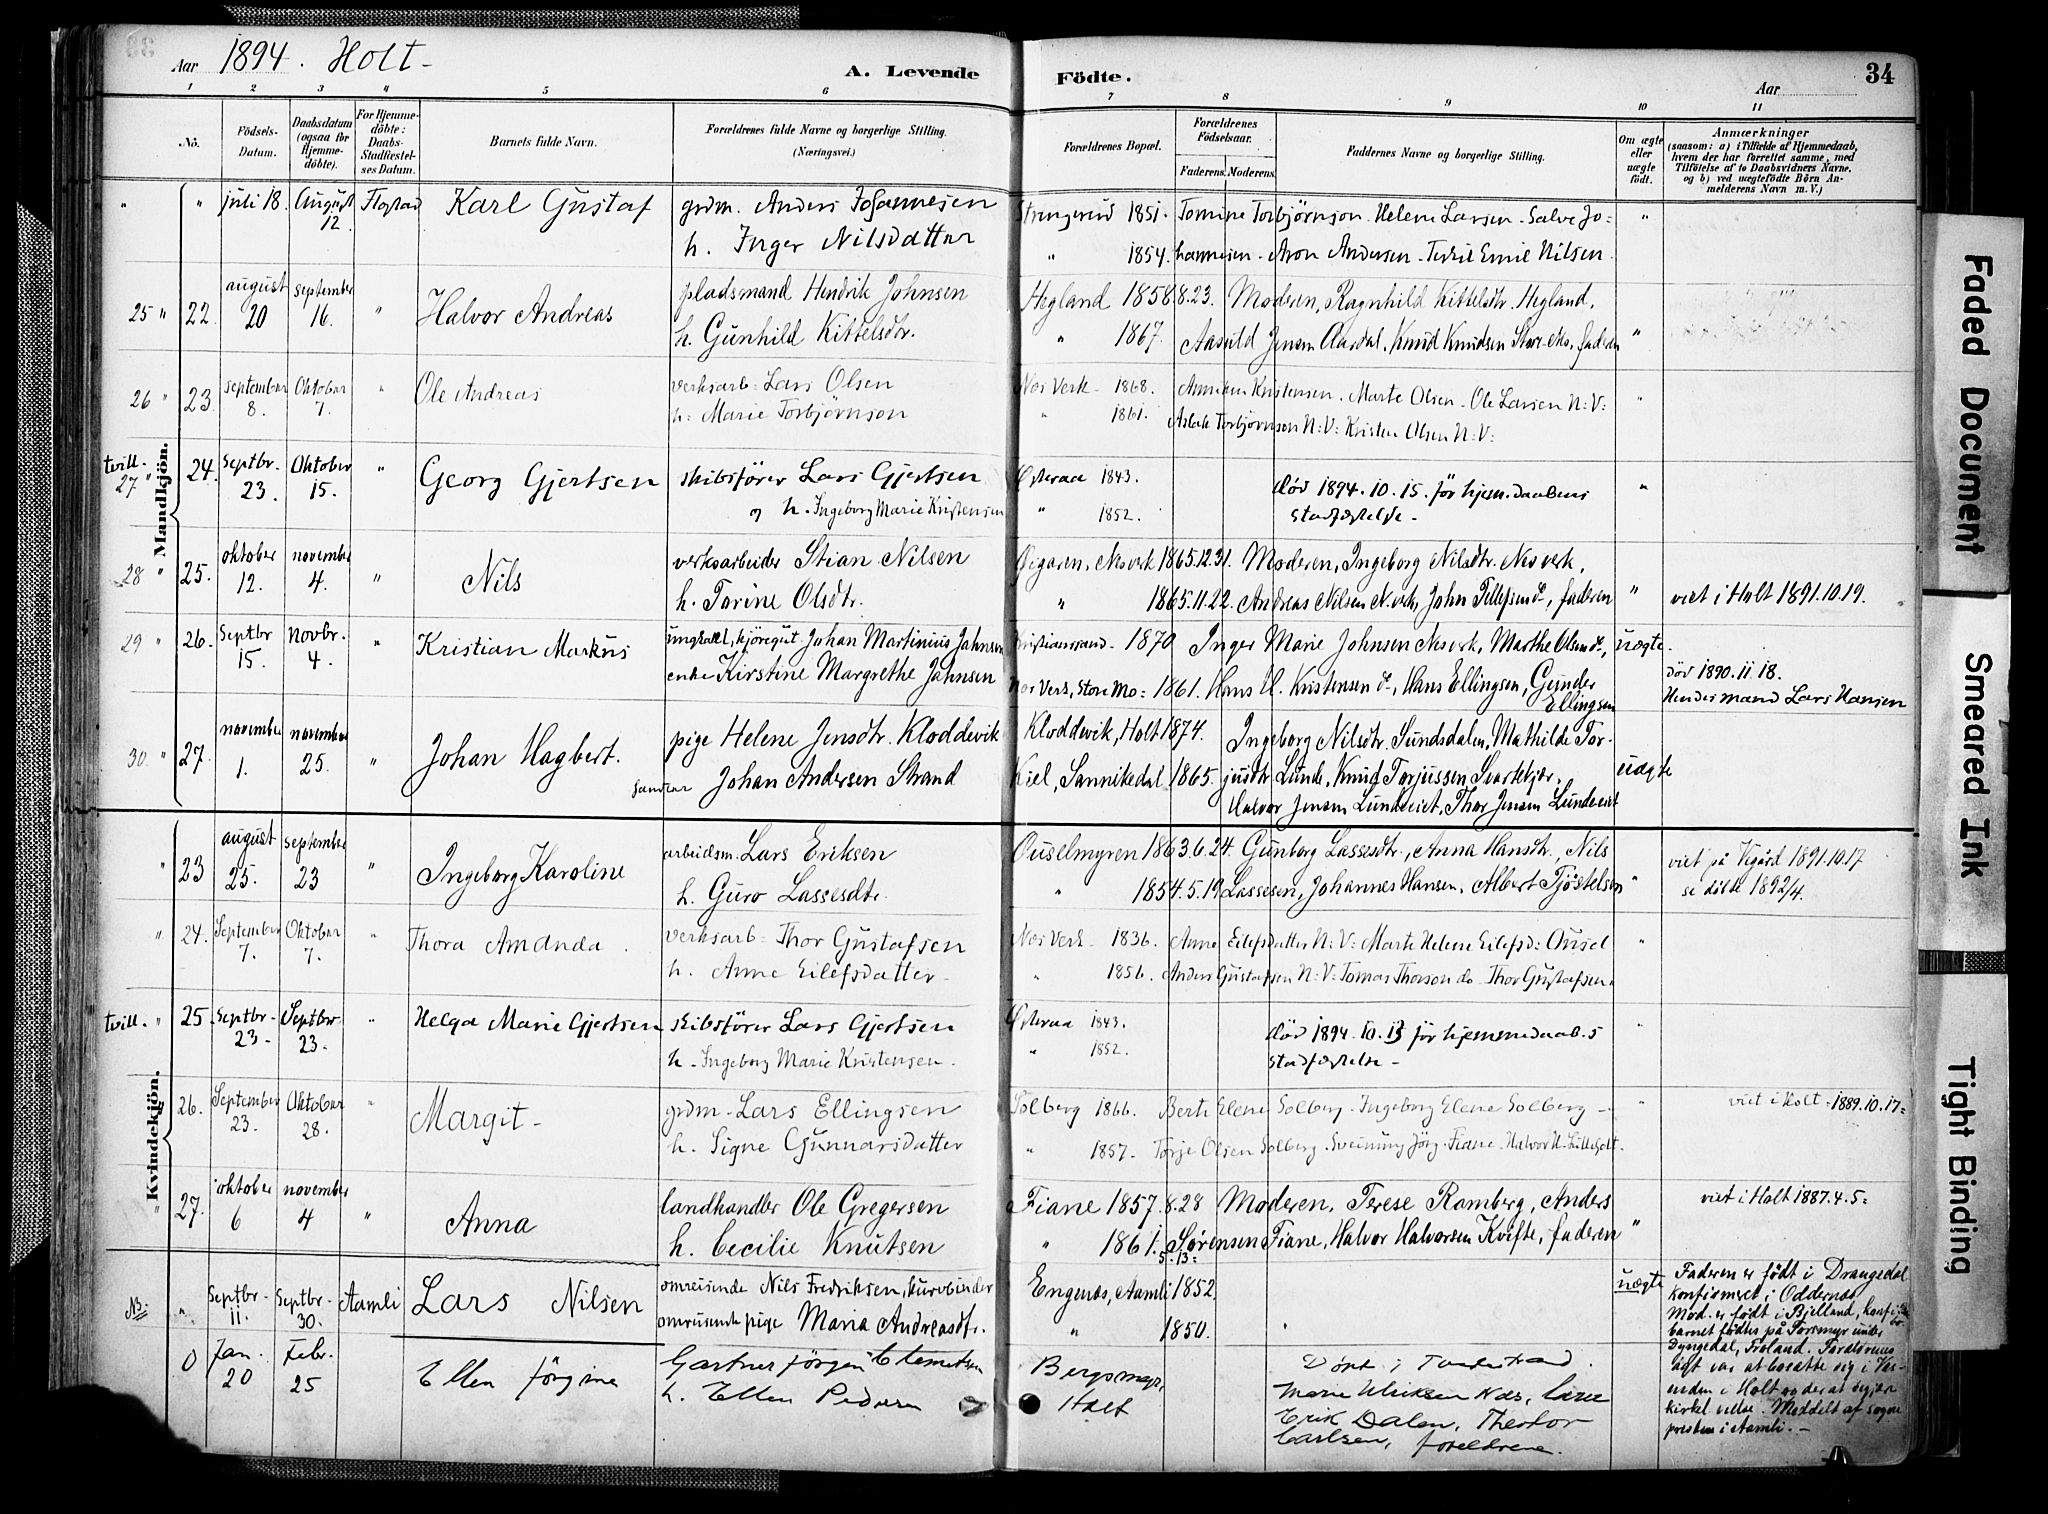 Aar 1894. Holt -
A. Levende Födte.
Aar
34
1 2 3 4 5 6 7 8 9 10 11
No.
Födsels-Datum.
Daabsdatum (ogsaa for Hjemme-döbte).
For Hjemme-döbte: Daabs-Stadfæstel-ses Datum.
Barnets fulde Navn.
Forældrenes fulde Navne og borgerlige Stilling. (Næringsvei.)
Forældrenes Bopæl.
Forældrenes Födselsaar.
Faderens. Moderens.
Faddernes Navne og borgerlige Stilling.
Om ægte eller uægte födt.
Anmærkninger
(saasom: a) i Tilfælde af Hjemmedaab, hvem der har forrettet samme, med Tilföielse af to Daabsvidners Navne, og b) ved uægtefödte Börn Anmelderens Navn m. V.)
Mandkjön.
" " juli 18. August 12 Flostad Karl Gustaf grdm. Anders Johannesen Strengereid 1851. Tomine Torbjörnson. Helene Larsen - Salve Jo= "
h. Inger Nilsdatter " 1854. hannesen - Aron Andersen - Terkil Emil Nilsen.
25 " 22 august 20 september 16. " Halvor Andreas pladsmand Hendrik Johnsen Hegland 1858.8.23. Moderen, Ragnhild Kittelsdtr. Hegland,
h. Gunhild Kittelsdtr. " 1867. Aasuld Jensen Aardal, Knud Knudsen faderen "
26 " 23 september 8. Oktober 7. " Ole Andreas verksarb: Lars Olsen Nes Verk - 1868. Anniken Kristensen. Marte Olsen - Ole Larsen N: V: "
h: Marie Torbjørnson " 1861. Aslak Torbjörnson N: V: Kristen Olsen N: V:
tvill. 27 " 24. Septbr. 23. Oktober 15. " Georg Gjertsen skibsfører Lars Gjertsen Østeraa 1843. död 1894. 10. 15. för hjem. daabens "
og h. Ingeborg Marie Kristensen " 1852. stadfæstelse -
28 " 25. oktober 12. november 4. " Nils verksarbeider Stian Nilsen Øigaren, Nesverk 1865.12.31. Moderen, Ingeborg Nilsdtr. Nesverk,
h. Torine Olsdtr. " 1865.11.22. Andreas Nilsen N.verk, John Tellefsen do, faderen " viet i Holt 1891.10.19.
29 " 26. Septbr 15. Novbr. 4. " Kristian Markus ungkarl, kjöregut Johan Martinius Jahnsen Kristianssand - 1870 Inger Marie Johnsen Nesverk, Marthe Olsen do, uægte.
enke Kirstine Margrethe Jahnsen Nes Verk, Store Mo: 1861. Hans H. Kristensen do, Hans Ellingsen, Gunder Ellingsen
död 1890. 11. 18. Hendes mand Lars Hansen
30. " 27. november 1. november 25. " Johan Hagbert. pige Helene Jensdtr. Kloddevik Kloddevik, Holt 1874. Ingeborg Nilsdtr. Sundsdalen, Mathilde Tor-
Johan Andersen Strand Kiel, Sannikedal 1865. jusdtr Lunde, Knud Torjussen Svartekjær, uægte
Halvor Jensen Lundeveiet, Thor Jensen Lundeveiet
Kvindekjön.
" 23 august 25. september 23 " Ingeborg Karoline arbeidsm. Lars Eriksen Ouselmyren 1863.6.24. Gunborg Lassesdtr., Anna Hansdtr., Nils viet på Vegård 1891.10.17
h. Guro Lassesdtr. " 1854.5.19 Lassesen, Johannes Hansen, Albert Tjöstelsen " se döbte 1892/4.
" 24. September 7. Oktober 7. " Thora Amanda. verksarb: Thor Gustafsen Nes Verk - 1836. Anne Eilefsdatter N: V: Marte Helene Eilefsd: Ousel "
h. Anne Eilefsdatter - " 1856. Anders Gustafsen N: V: Tomas Thorson do - Thor Gustafsen.
tvill. " 25. Septbr - 23 - Septbr 23. " Helga Marie Gjertsen skibsfører Lars Gjertsen Østeraa 1843. död 1894. 10. 13 för hjemmedaabs "
h. Ingeborg Marie Kristensen. " 1852. stadfæstelse -
26. September 23. Oktober 28. " Margit - grdm - Lars Ellingsen Solberg 1866. Berte Elene Solberg - Ingeborg Elene Solberg - " viet i Holt - 1889.10.17=
h. Signe Gunnarsdatter " 1857. Torje Olsen Solberg - Sveinung Jörg. Fiane - Halvor H. Lilleholt.
" 27. oktober 6 november 4 " Anna landhandler Ole Gregersen Fiane 1857.8.28 Moderen, Terese Ramberg, Anders viet i Holt 1887.4.5=
h. Cecilie Knutsen " 1861.5.13= Sørensen Fiane, Halvor Halvorsen Kvifte, faderen "
NB: " Septbr - 11. Septbr - 30. Aamli Lars Nilsen omreisende Nils Fredriksen, kurvbinder Engenes, Aamli 1852. uægte
omreisende pige Maria Andreasdtr. " 1850. "
Faderen er född i Drangedal
konfirmeret i Oddernes
Mod. er född i Bjelland,
barnet födtes på Torsmyr under
Dyngedal, Froland. Forældrenes
agt var at bosætte sig i Ves-
enden i Holt og der at
kirkel. vielse. Meddelt af sogne
presten i Aamli. -
0 Jan. 20 Febr. 25 Ellen Jörgine Gartner Jörgen Clemetsen Bergsmyr, Holt Döpt i Tvedestrand.
h. Ellen Pedersen Marie Ulriksen Næs, Lars
Erik Dalen, Theodor
Carlsen, foreldrene.
Faded Document
Smeared Ink
Tight Binding